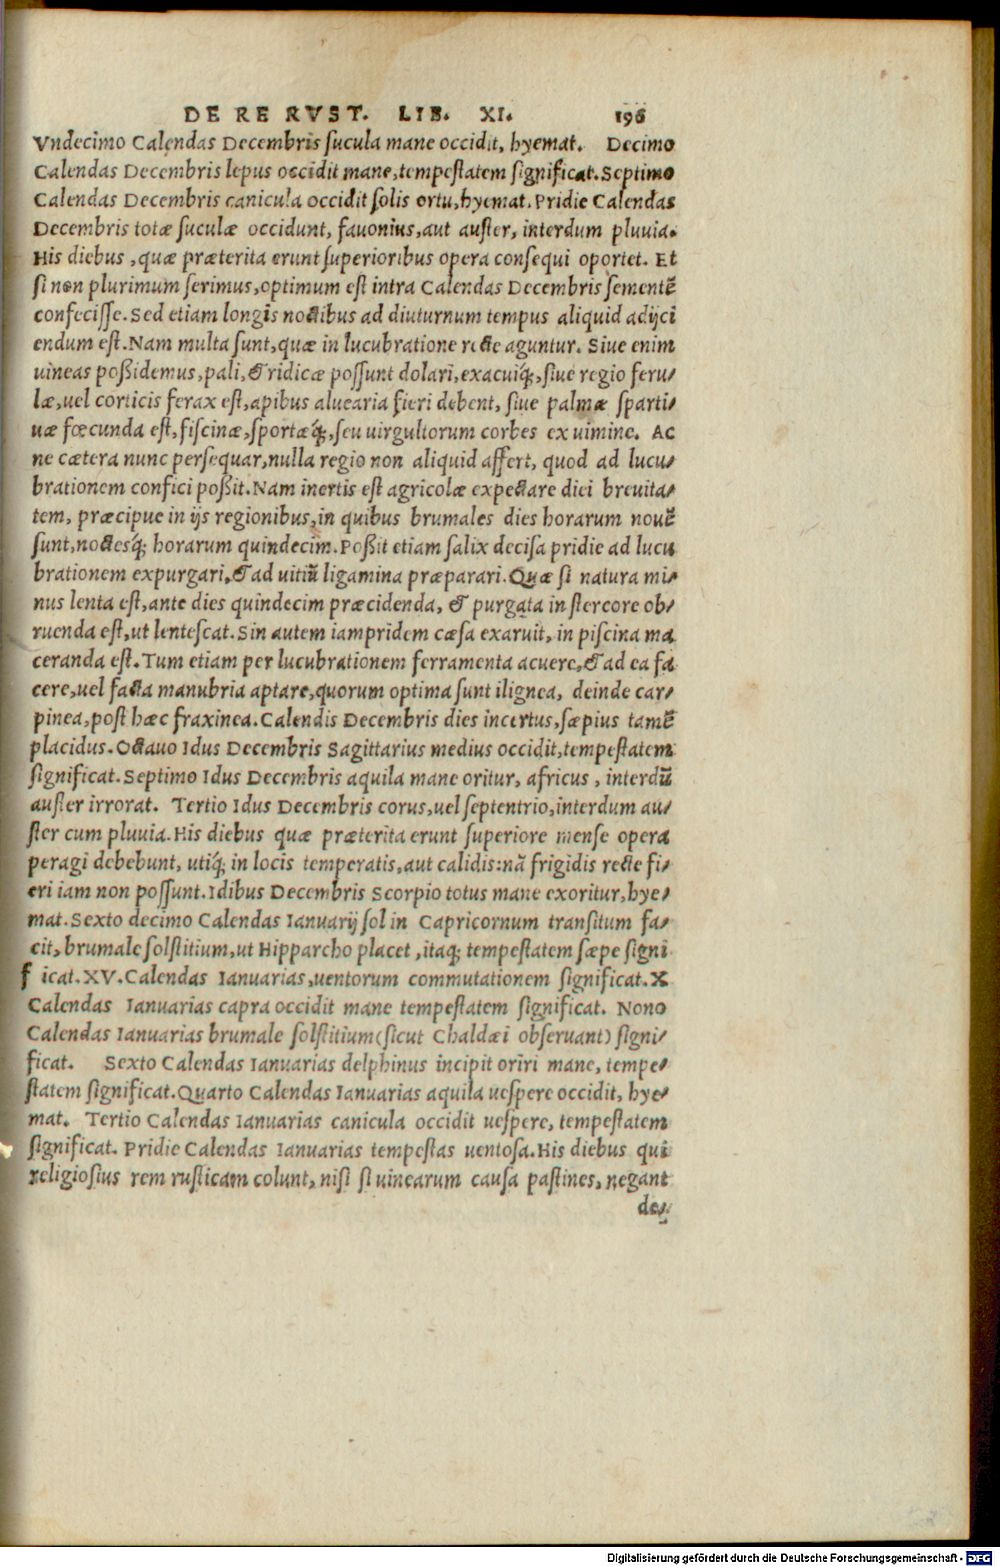 DE RE RVST. LIB. XI. 196
Vndecimo Calendas Decembris sucula mane occidit, hyemat. Decimo
Calendas Decembris lepus occidit mane, tempestatem significat. Septimo
Calendas Decembris canicula occidit solis ortu, hyemat. Pridie Calendas
Decembris totæ suculæ occidunt, fauonius, aut auster, interdum pluuia.
His diebus, quæ præterita erunt superioribus opera consequi oportet. Et
si non plurimum serimus, optimum est intra Calendas Decembris sementē
confecisse. Sed etiam longis noctibus ad diuturnum tempus aliquid adijci
endum est. Nam multa sunt, quæ in lucubratione recte aguntur. Siue enim
uineas possidemus, pali, & ridicæ possunt dolari, exacuiq́;, siue regio feru-
læ, uel corticis ferax est, apibus aluearia fieri debent, siue palmæ sparti-
uæ fœcunda est, fiscinæ, sportæq́;, seu uirgultorum corbes ex uimine. Ac
ne cætera nunc persequar, nulla regio non aliquid affert, quod ad lucu-
brationem confici possit. Nam inertis est agricolæ expectare diei breuita-
tem, præcipue in ijs regionibus, in quibus brumales dies horarum nouē
sunt, noctesq́; horarum quindecim. Possit etiam salix decisa pridie ad lucu
brationem expurgari, & ad uitiū ligamina præparari. Quæ si natura mi-
nus lenta est, ante dies quindecim præcidenda, & purgata in stercore ob-
ruenda est, ut lentescat. Sin autem iampridem cæsa exaruit, in piscina ma
ceranda est. Tum etiam per lucubrationem ferramenta acuere, & ad ea fa
cere, uel facta manubria aptare, quorum optima sunt ilignea, deinde car-
pinea, post hæc fraxinea. Calendis Decembris dies incertus, sæpius tamē
placidus. Octauo Idus Decembris Sagittarius medius occidit, tempestatem
significat. Septimo Idus Decembris aquila mane oritur, africus, interdū
auster irrorat. Tertio Idus Decembris corus, uel septentrio, interdum au-
ster cum pluuia. His diebus quæ præterita erunt superiore mense opera
peragi debebunt, utiq́; in locis temperatis, aut calidis: nā frigidis recte fi-
eri iam non possunt. Idibus Decembris Scorpio totus mane exoritur, hye-
mat. Sexto decimo Calendas Ianuarij sol in Capricornum transitum fa-
cit, brumale solstitium, ut Hipparcho placet, itaq; tempestatem sæpe signi
f icat. XV. Calendas Ianuarias, uentorum commutationem significat. X
Calendas Ianuarias capra occidit mane tempestatem significat. Nono
Calendas Ianuarias brumale solstitium (sicut Chaldæi obseruant) signi-
ficat. Sexto Calendas Ianuarias delphinus incipit oriri mane, tempe-
statem significat. Quarto Calendas Ianuarias aquila uespere occidit, hye-
mat. Tertio Calendas Ianuarias canicula occidit uespere, tempestatem
significat. Pridie Calendas Ianuarias tempestas uentosa. His diebus qui
religiosius rem rusticam colunt, nisi si uinearum causa pastines, negant
de-
Digitalisierung gefördert durch die Deutsche Forschungsgemeinschaft - DFG